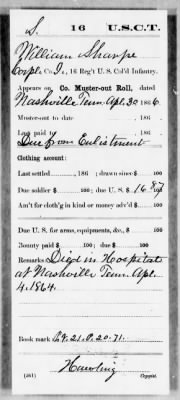 S. 16 U.S.C.T.
William Sharpe
Corpl, Co. I, 16 Reg't U. S. Col'd Infantry.
Appears on Co. Muster-out Roll, dated
Nashville Tenn. Apl. 30, 1866
Muster-out to date , 186
Last paid to , 186
Due from Enlistment
Clothing account:
Last settled , 186 ; drawn since $ 100
Due soldier $ 100; due U. S. $ 16 87/100
Am't for cloth'g in kind or money adv'd $ 100
Due U. S. for arms, equipments, &c., $ 100
Bounty paid $ 100; due $ 100
Remarks: Died in Hospital
at Nashville Tenn. Apl.
4. 1864.
Book mark:
(361) Copyist.